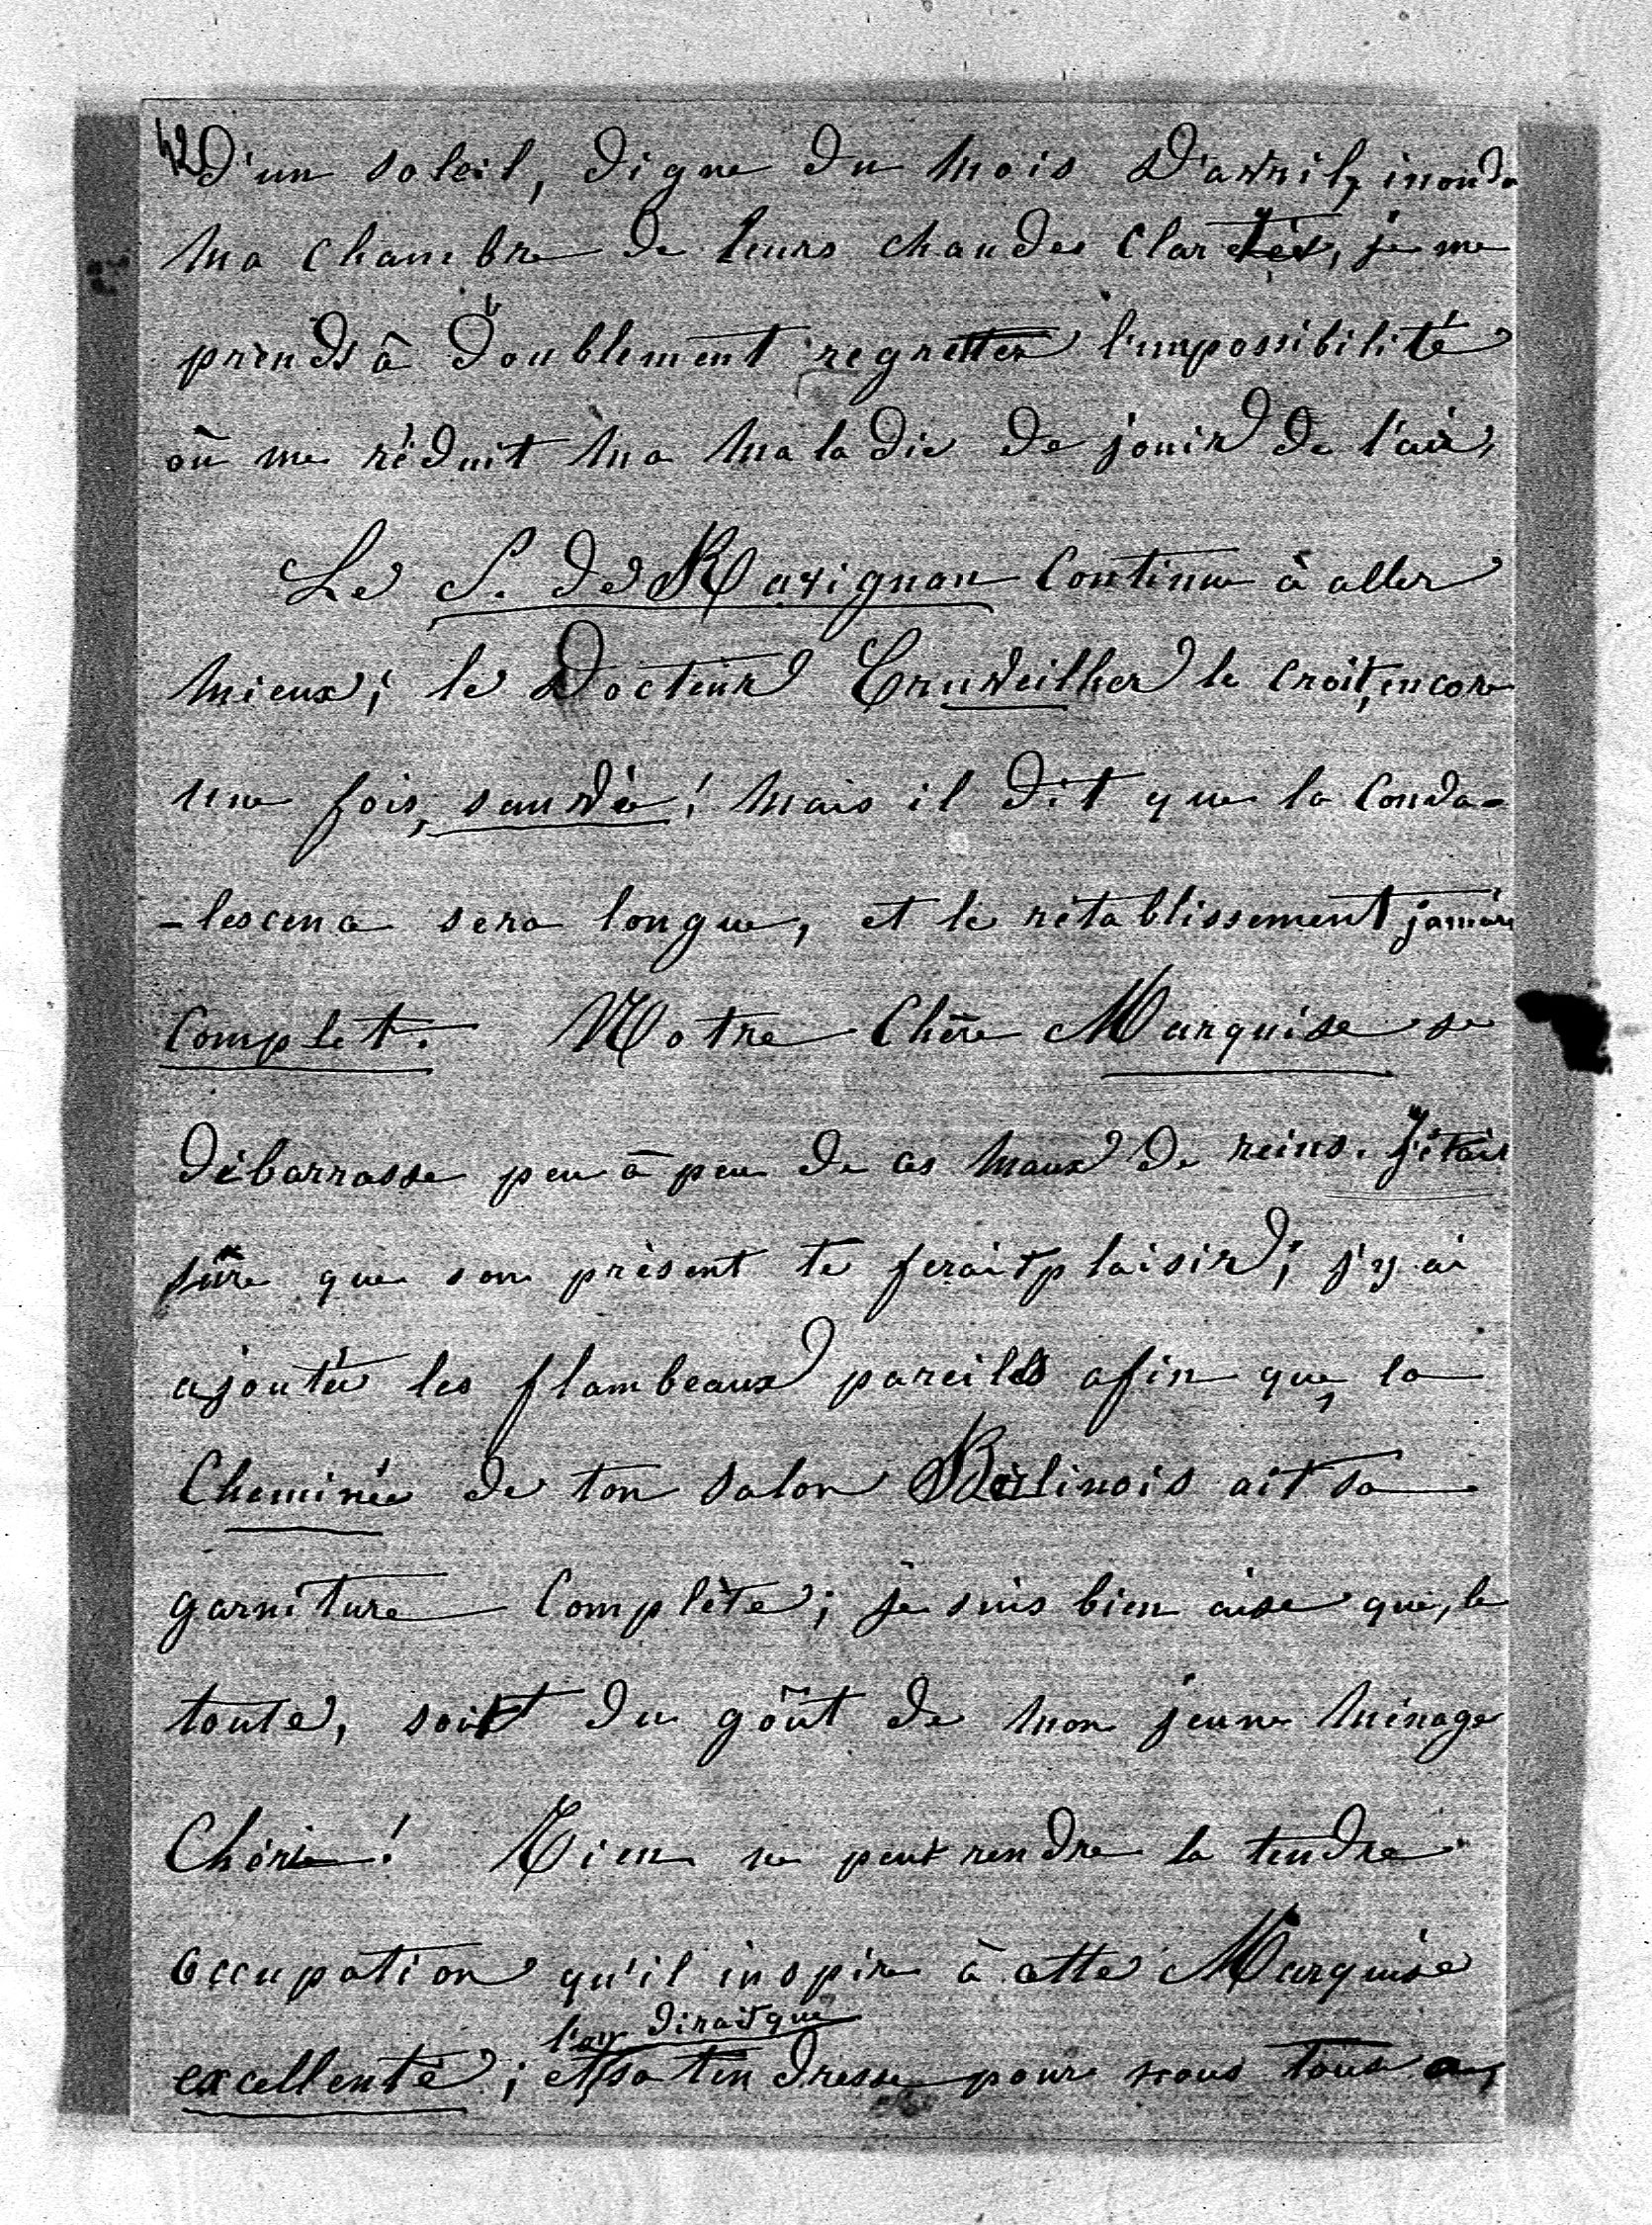 42
d'un soleil, digne du mois d'avril, inonda
ma chambre de leurs chaudes clartés, je me
prends à doublement regretter l'impossibilité
où me réduit ma maladie de jouir de l'air,
Le P. de Ravignan continue à aller
mieux; le Docteur Cruveilher le croit, encore
une fois, sauvée! mais il dit que la conva-
-lescence sera longue, et le rétablissement jamais
complet. Notre chère Marquise se
débarrasse peu à peu de ces maux de reins. J'étais
sûre que son présent te ferait plaisir; j'y ai
ajoutée les flambeaux pareils afin que, la
cheminée de ton salon Berlinois ait sa
garniture complète; je suis bien aise que, le
toute, soit du goût de mon jeune ménage
Chérie! Rien ne peut rendre la tendre
occupation qu'il inspire à cette Marquise
l'on dirait que
excellente; sa tendresse pour vous tous